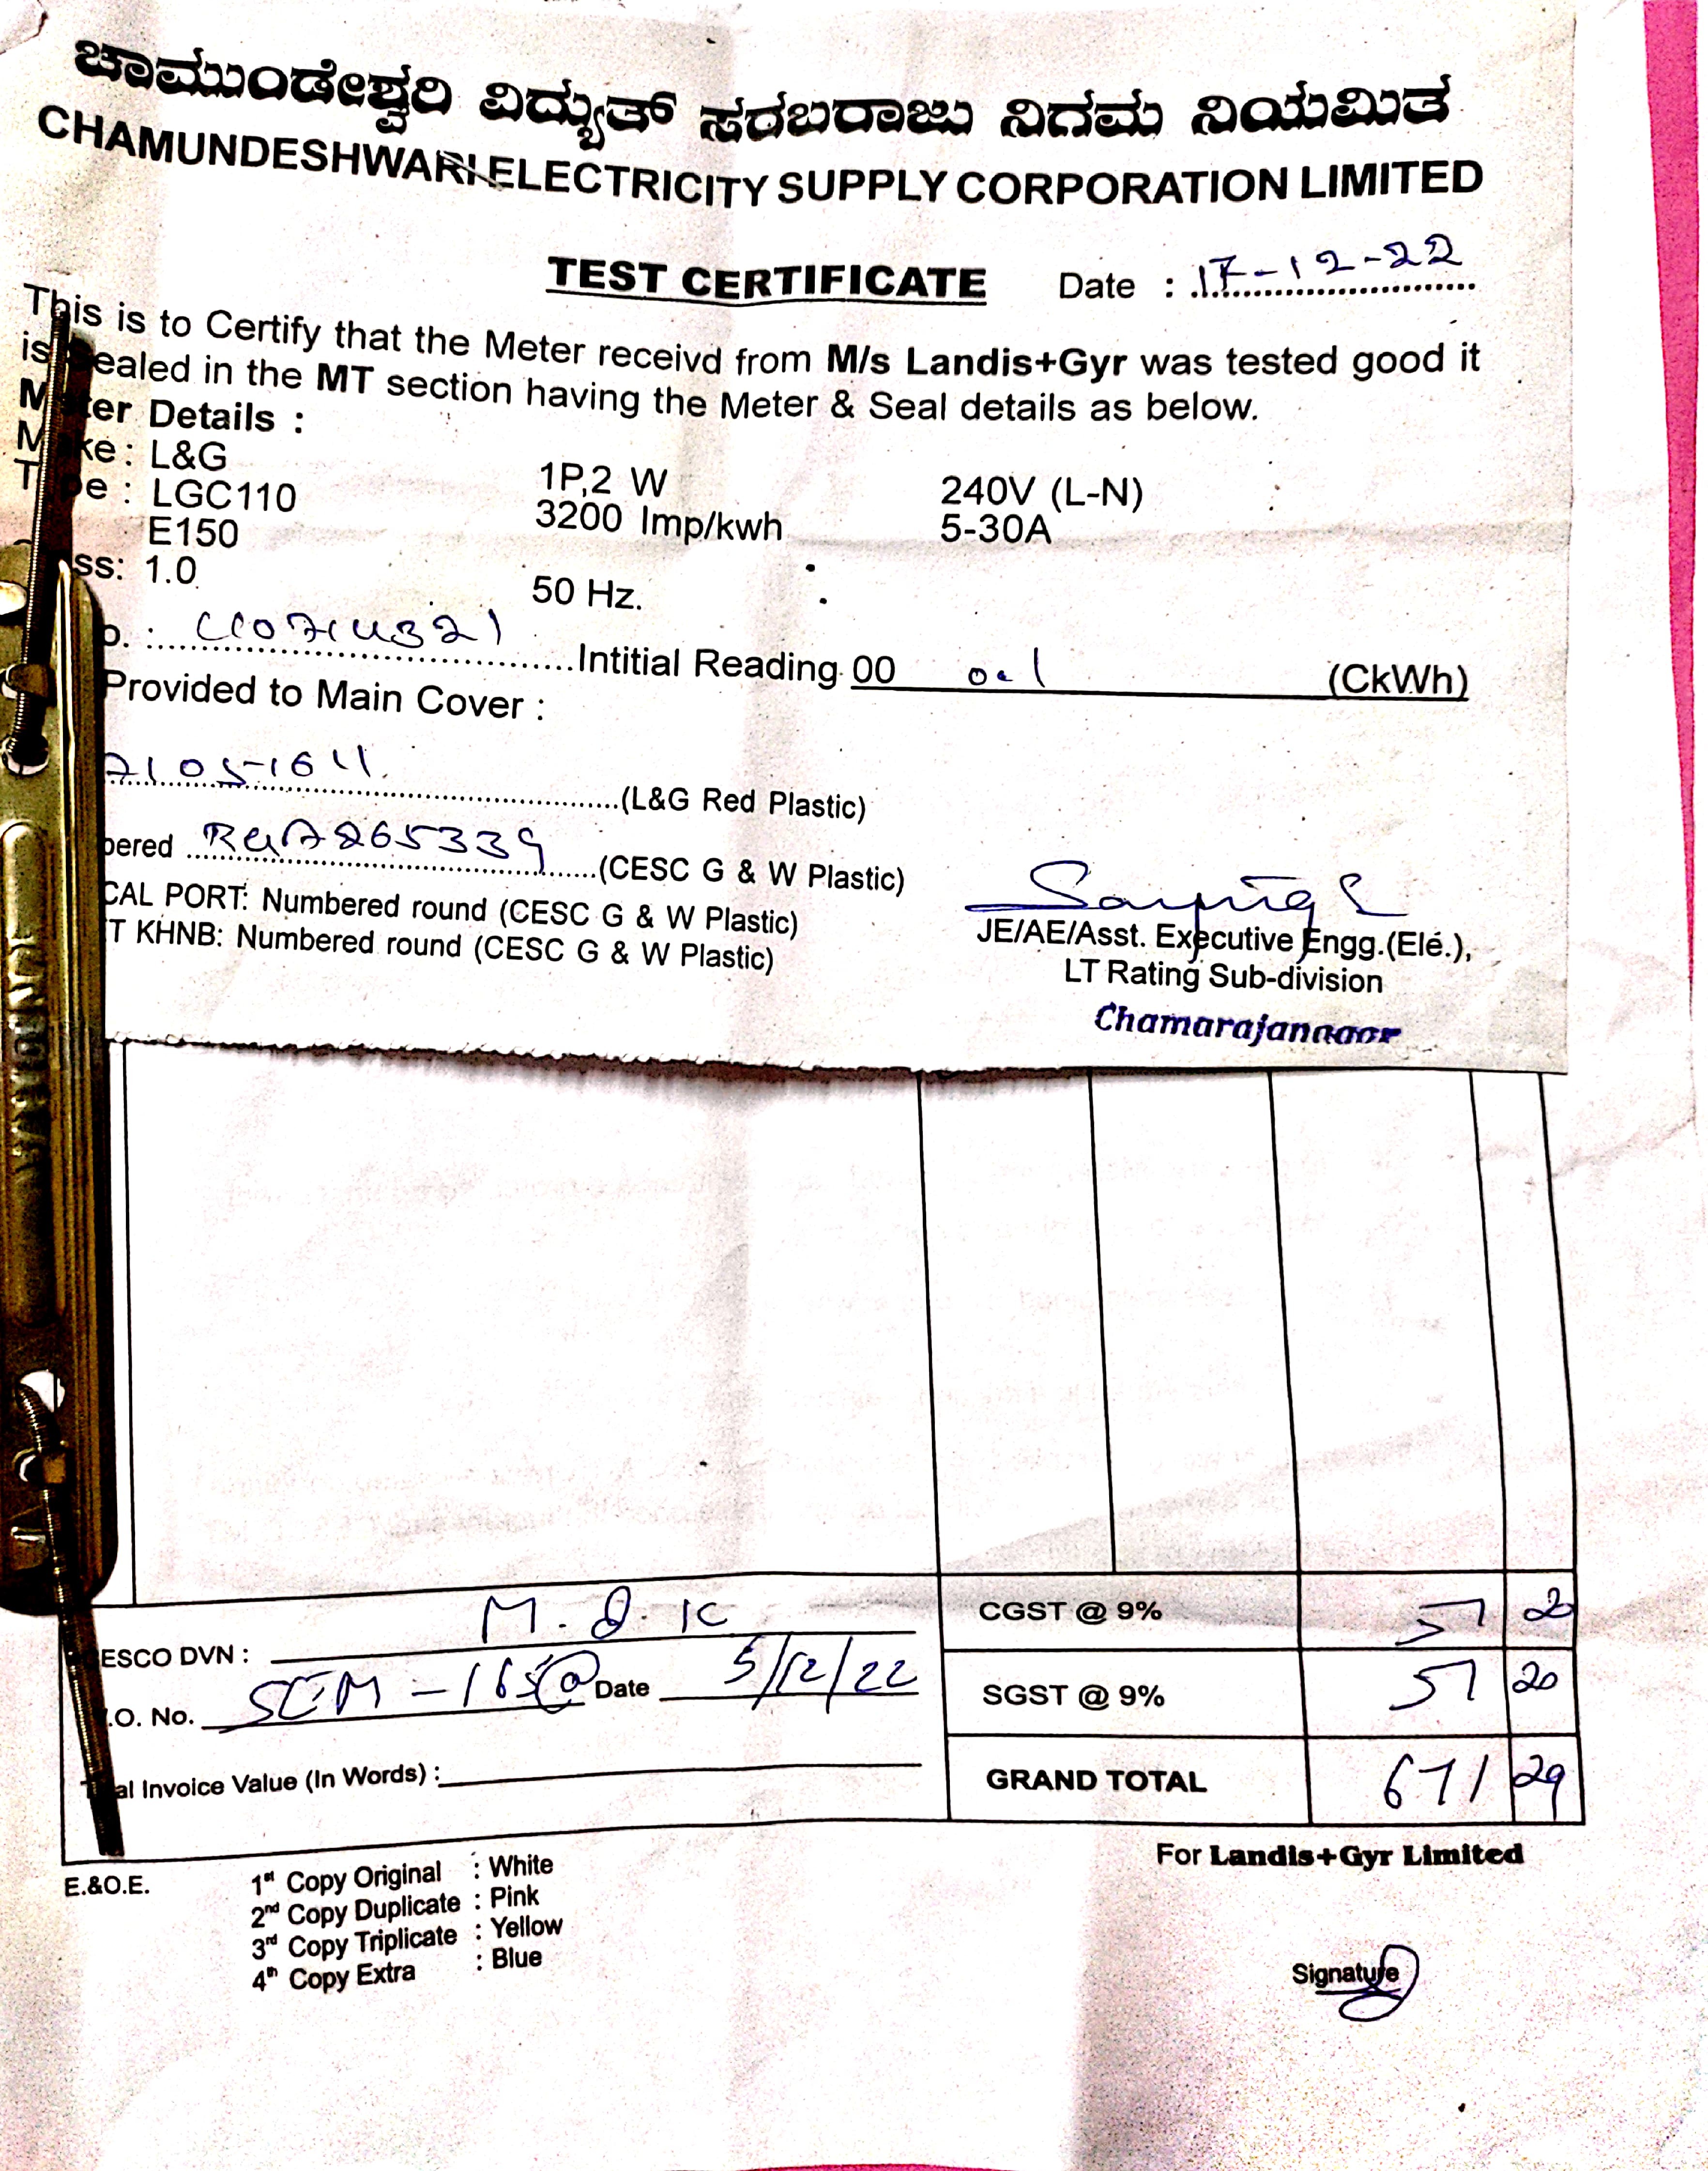 ಚಾಮುಂಡೇಶ್ವರಿ ವಿದ್ಯುತ್ ಸರಬರಾಜು ನಿಗಮ ನಿಯಮಿತ
CHAMUNDESHWARI ELECTRICITY SUPPLY CORPORATION LIMITED
TEST CERTIFICATE Date : 17-12-22
This is to Certify that the Meter receivd from M/s Landis+Gyr was tested good it
is sealed in the MT section having the Meter & Seal details as below.
Meter Details :
Make : L&G 1P,2 W 240V (L-N)
Type : LGC110 3200 Imp/kwh 5-30A
E150
ss: 1.0 50 Hz.
o. : Intitial Reading 00 0.1 (CkWh)
Provided to Main Cover :
(L&G Red Plastic)
bered (CESC G & W Plastic)
CAL PORT: Numbered round (CESC G & W Plastic)
T KHNB: Numbered round (CESC G & W Plastic)
JE/AE/Asst. Executive Engg.(Ele.),
LT Rating Sub-division
Chamarajanagar
CGST @ 9% 51 20
ESCO DVN :
.O. No. Date 5/12/22
SGST @ 9% 51 20
al Invoice Value (In Words) :
GRAND TOTAL 671 29
For Landis+Gyr Limited
E.&O.E.
1st Copy Original : White
2nd Copy Duplicate : Pink
3rd Copy Triplicate : Yellow
4th Copy Extra : Blue
Signature